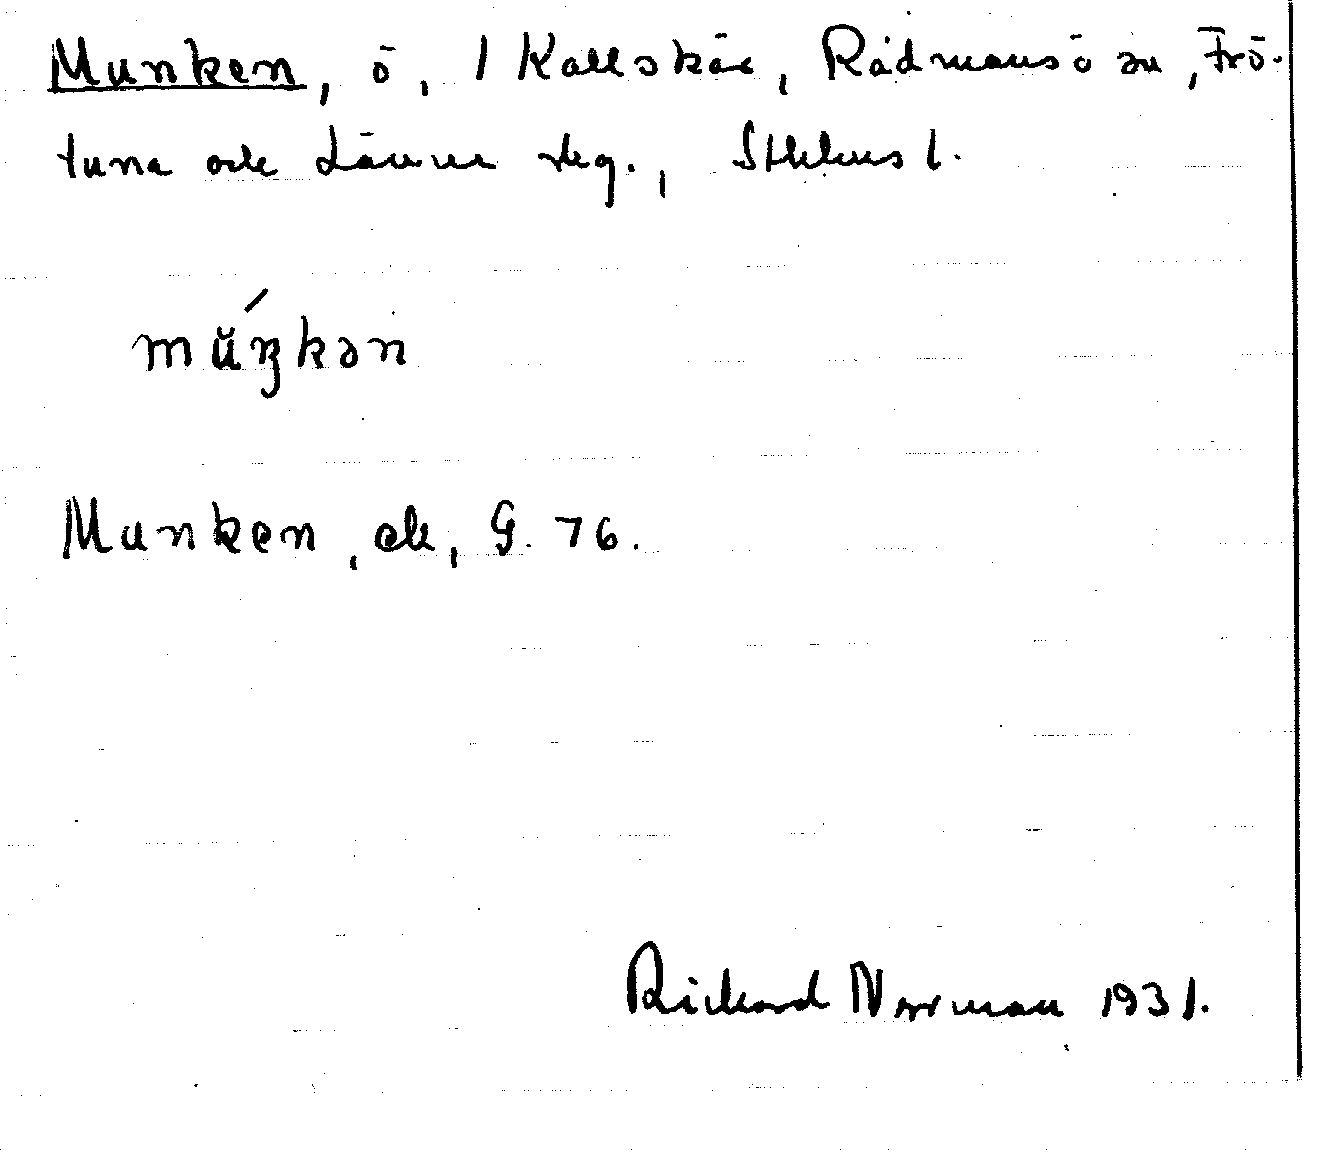 Munken, ö, 1 Kallskär, Rådmansö sn, Frö-
tuna och Länna skg., Sthlms l.
mŭ́ŋkən
Munken, ek, G. 76.
Rickard Norrman 1931.